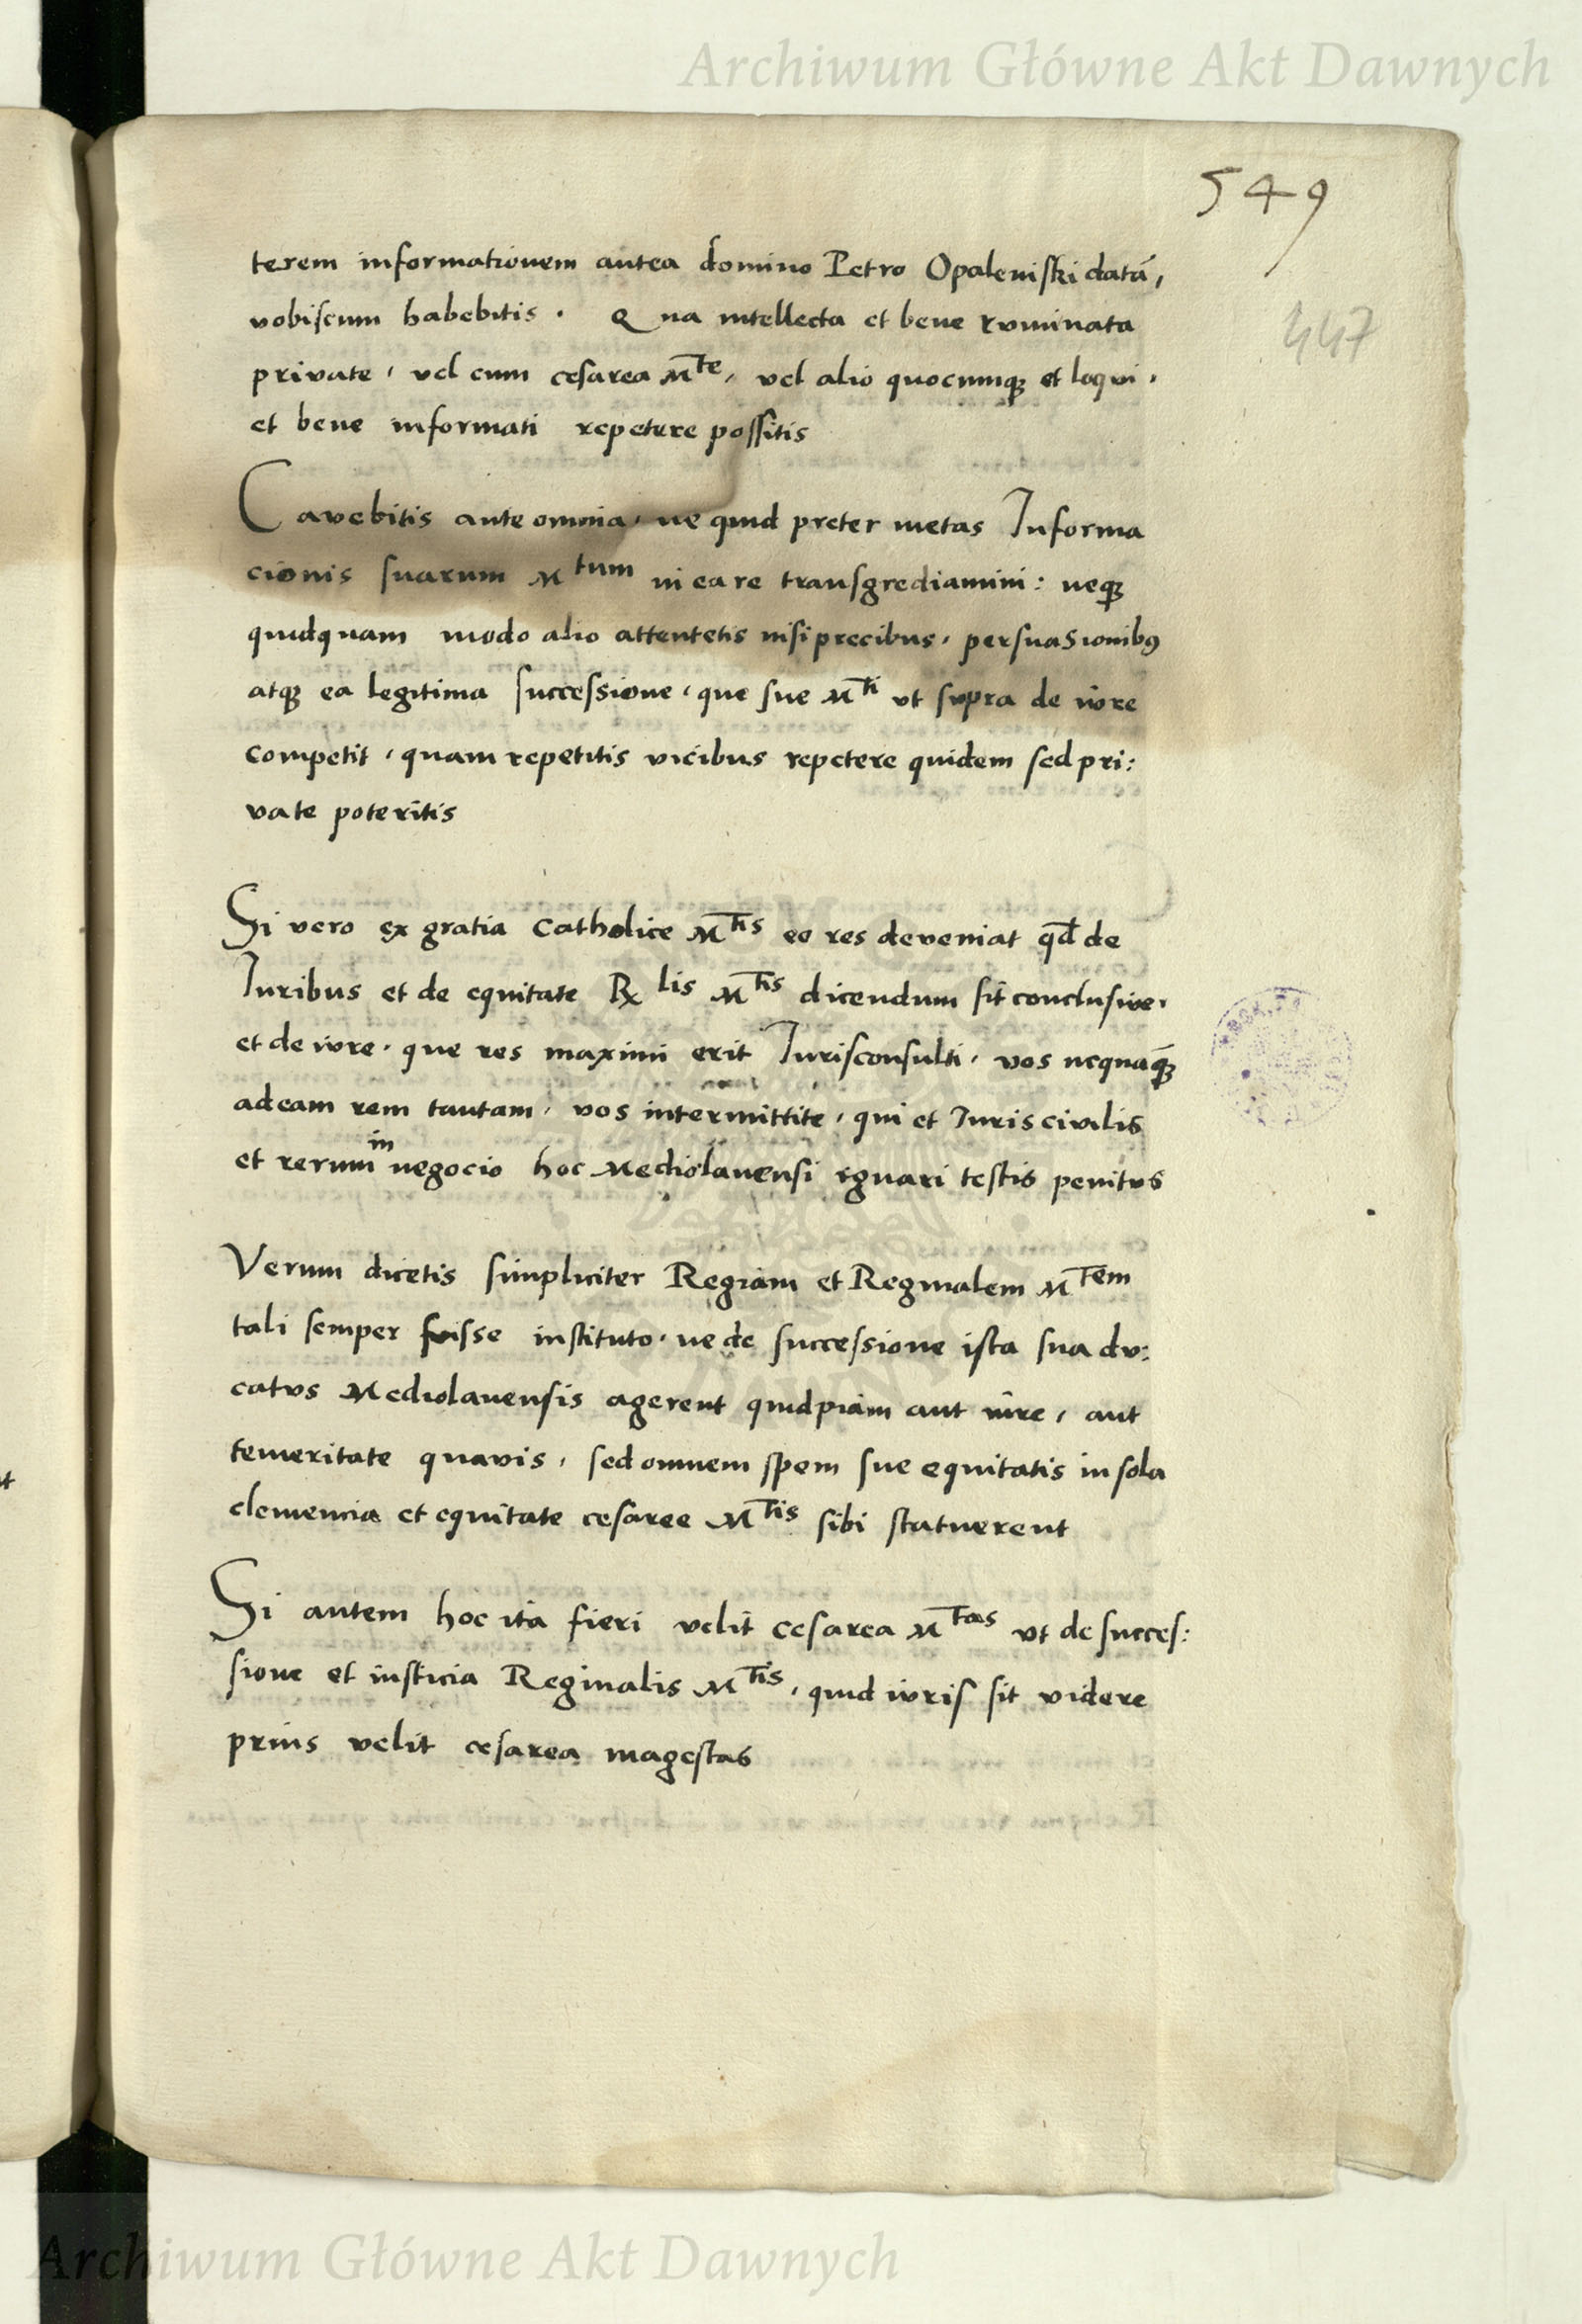 Archiwum Główne Akt Dawnych
549
447
terem informationem antea domino Petro Opaleniſki datā,
vobiſcum habebitis · Qua intellecta et bene ruminata
private, vel cum ceſarea M^te, vel alio quocumqȝ et loqui,
et bene informati repetere poſſitis
Cavebitis ante omnia, ne quid preter metas Informa
cionis ſuarum M^tum in ea re tranſgrediamini: neqȝ
quidquam modo alio attentetis niſi precibus, perſuasionibꝯ
atqȝ ea legitima ſucceſſione, que ſue M^ti vt ſupra de iure
competit, quam repetitis vicibus repetere quidem ſed pri:
vate poteritis
Si vero ex gratia Catholice M^tis eo res deveniat qđ de
Iuribus et de equitate Rx^lis M^tis dicendum ſit concluſive,
et de iure, que res maximi erit Iuriſconſulti, vos nequāqȝ
ad eam rem tantam, vos intermittite, qui et Iuris civilis
et rerum in negocio hoc Mediolanenſi ignari teſtis penitus
Verum dicetis ſimpliciter Regiam et Reginalem M^tem
tali ſemper fuisse inſtituto, ne de ſucceſſione iſta ſua du:
catus Mediolanenſis agerent quidpiam aut iure, aut
temeritate quavis, ſed omnem ſpem ſue equitatis in ſola
clemencia et equitate ceſaree M^tis ſibi ſtatuerent
Si autem hoc ita fieri velit ceſarea M^tas vt de ſucceſ:
ſione et iuſticia Reginalis M^tis, quid iuriſ ſit videre
prius velit ceſarea mageſtas
Archiwum Główne Akt Dawnych